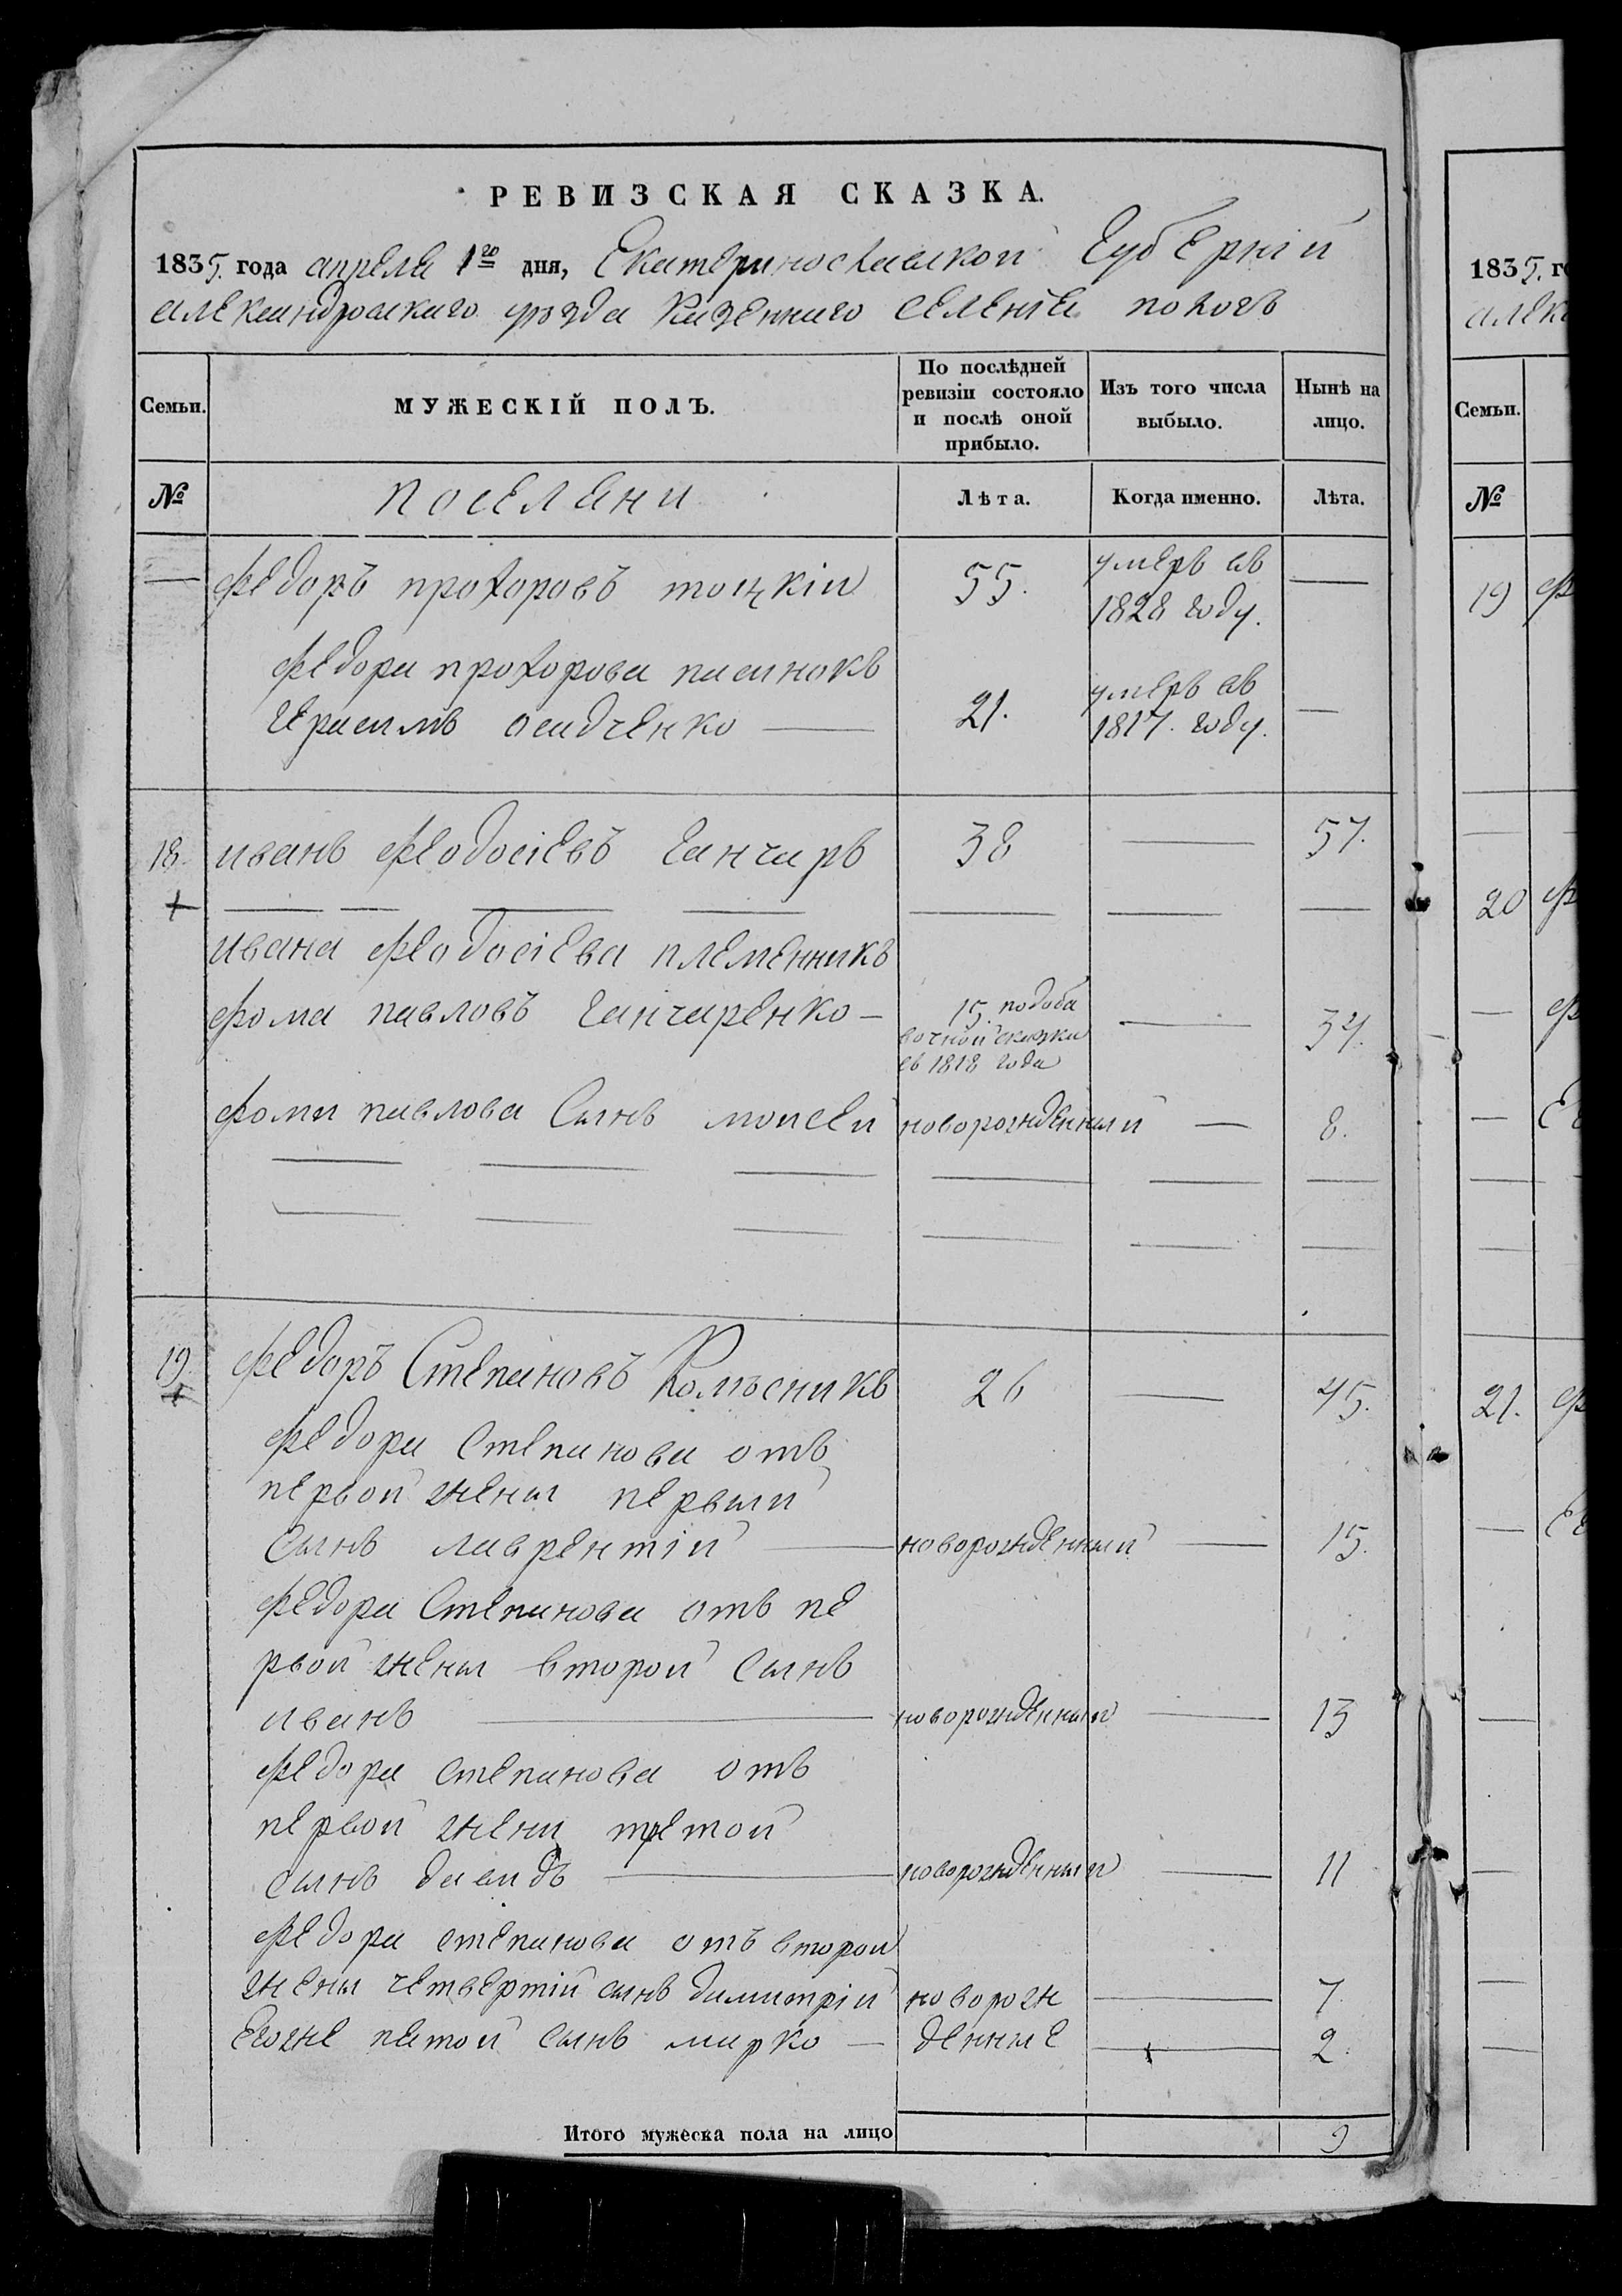 РЕВИЗСКАЯ СКАЗКА.
1835. года апреля 1го дня, Екатеринославской Губерній
александровского уѣзда Казенного Селенія пологъ
Семьи.
МУЖЕСКІЙ ПОЛЪ.
По послѣдней ревизіи состояло и послѣ оной прибыло.
Изъ того числа выбыло.
Нынѣ на лицо.
№
поселяни
Лѣта.
Когда именно.
Лѣта.
— федоръ прохоровъ тоцкій 55. умеръ въ 1828 году. —
федора прохорова пасинокъ
герасимъ осадченко — 21. умеръ въ 1817. году. —
18. иванъ феодосіевъ ганчаръ 38 — 57.
ивана феодосіева племенникъ
фома павловъ ганчаренко — 15. подоба вочной скаски съ 1818 года — 34.
фоми павлова Сынъ моисей новорожденный — 8.
19. федоръ Степановъ Колѣсникъ 26 — 45.
федора степанова отъ
первой жены первый
сынъ лаврентій — новорожденный — 15.
федора Степанова отъ пе
рвой жены второй сынъ
иванъ — новорожденный — 13
федора степанова отъ
первой жени третой
сынъ давидъ — новорожденный — 11
федора степанова отъ второй
жены четвертій сынъ димитрій новорож — 7
Егоже пятой сынъ марко — денные — 2.
Итого мужеска пола на лицо 9
1835. го
алекс
Семьи.
№
19 ф
20 ф
— ф
— Е
21. ф
— Е